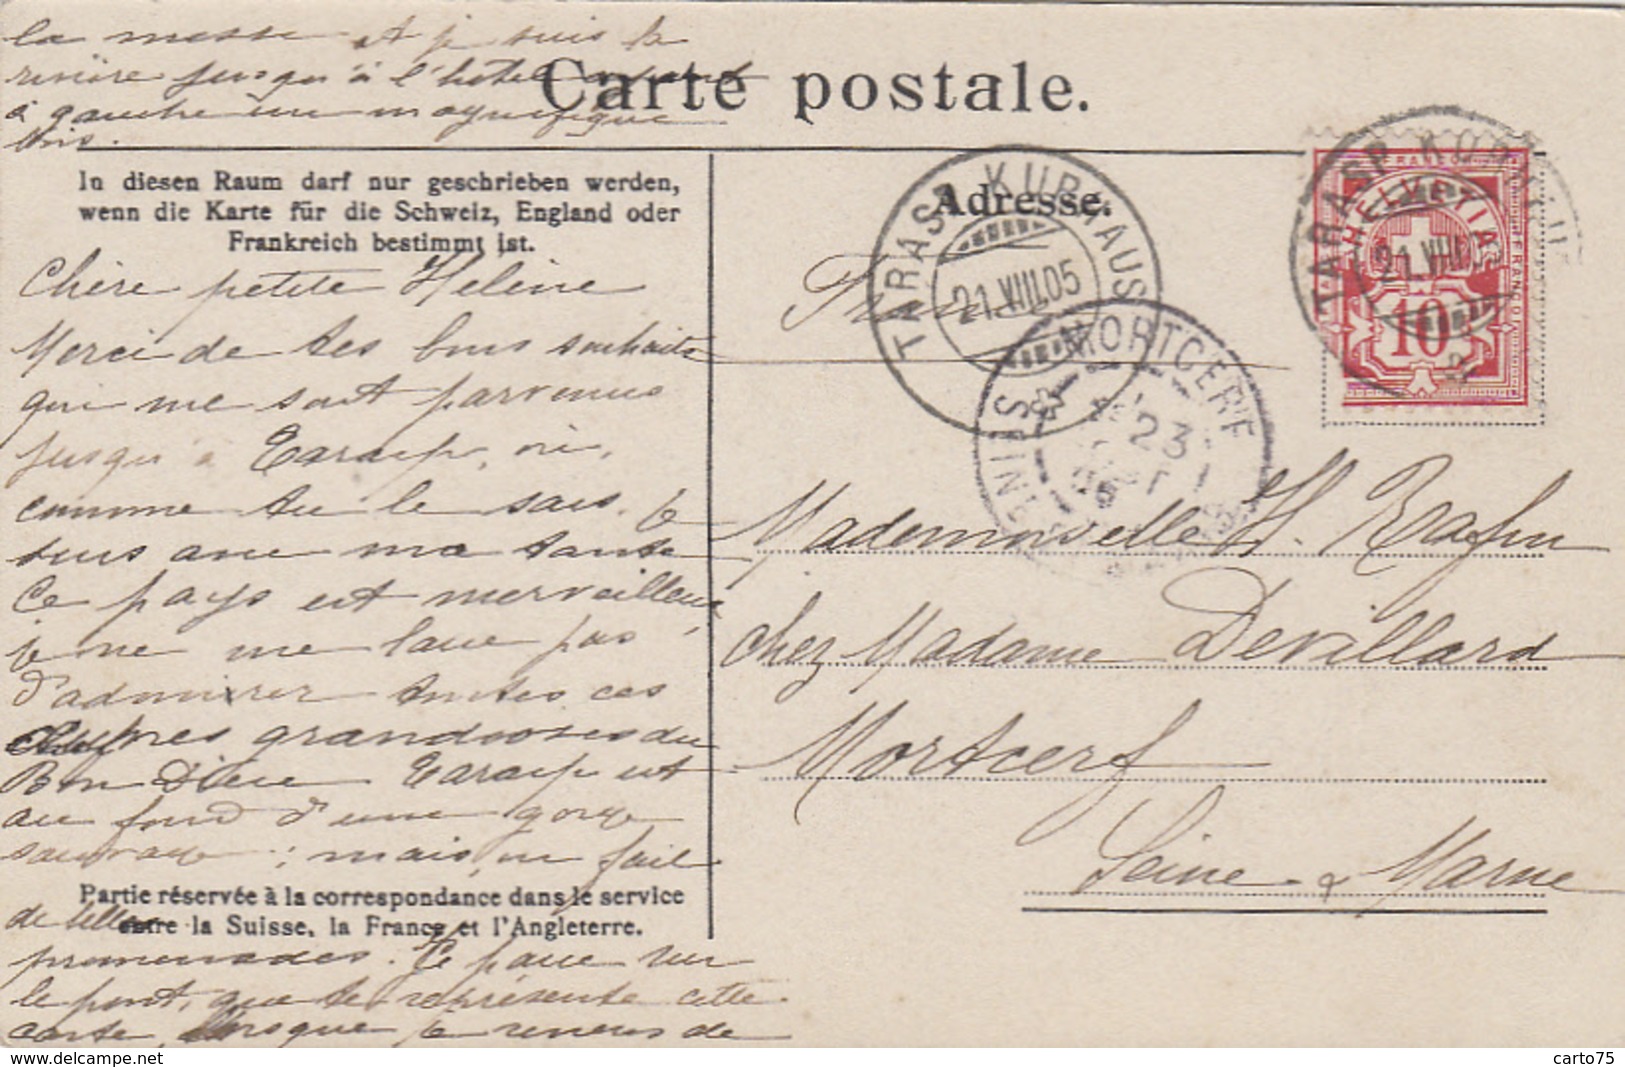 la messe et je suis la
rivière jusqu'à l'hotel ayant
à gauche un magnifique
bois.
Carte postale.
In diesen Raum darf nur geschrieben werden,
wenn die Karte für die Schweiz, England oder
Frankreich bestimmt ist.
Adresse.
TARASP KURHAUS
21.VIII.05
TARASP KURHAUS
21.VIII.05
HELVETIA
FRANCO
10
MORTCERF
23
05
France
Chère petite Helène
Merci de tes bons souhaits
qui me sont parvenus
jusqu'à Tarasp, où,
comme tu le sais, je
suis avec ma tante
Ce pays est merveilleux,
je ne me lasse pas
d'admirer toutes ces
grandioses du
Bon Dieu Tarasp est
au fond d'une gorge
sauvage ; mais, on fait
Partie réservée à la correspondance dans le service
entre la Suisse, la France et l'Angleterre.
de belles
promenades. Je passe sur
le pont, que te représente cette
carte, lorsque je reviens de
Mademoiselle H.
chez Madame Devillard
Mortcerf
Seine & Marne
www.delcampe.net
carto75